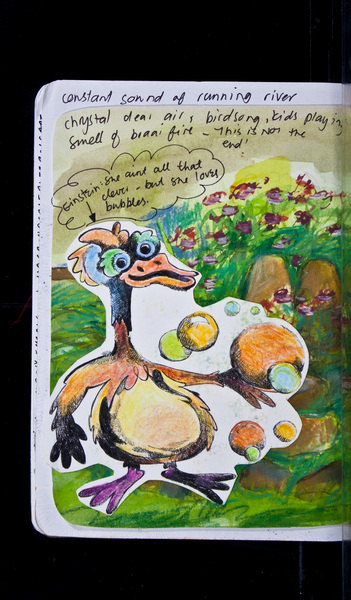 constant sound of running river
chrystal clear air, birdsong, kids playing
smell of braai fire - This is not the
end!
Einstein: she aint all that
clever - but she loves
bubbles.